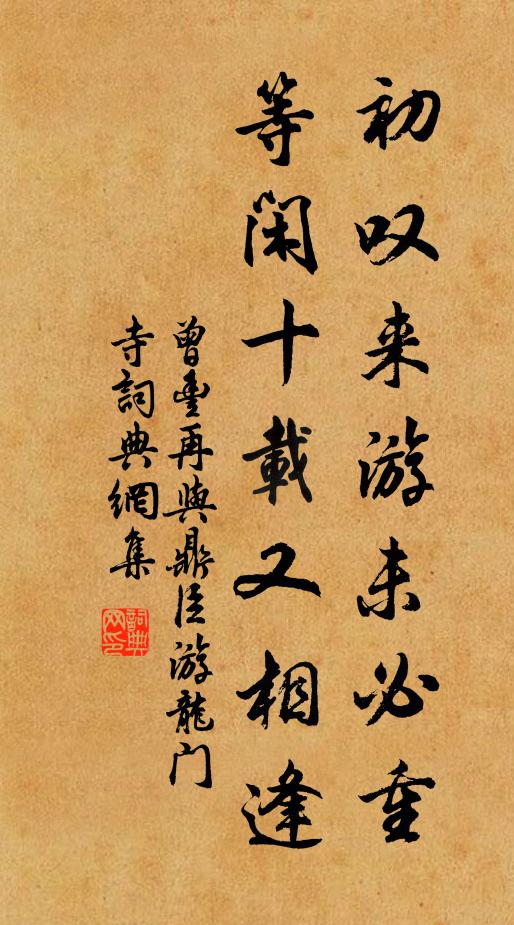 初叹来游未必重
等闲十载又相逢
曾丰再与鼎臣游龍门
寺詞典網集
詞典网印